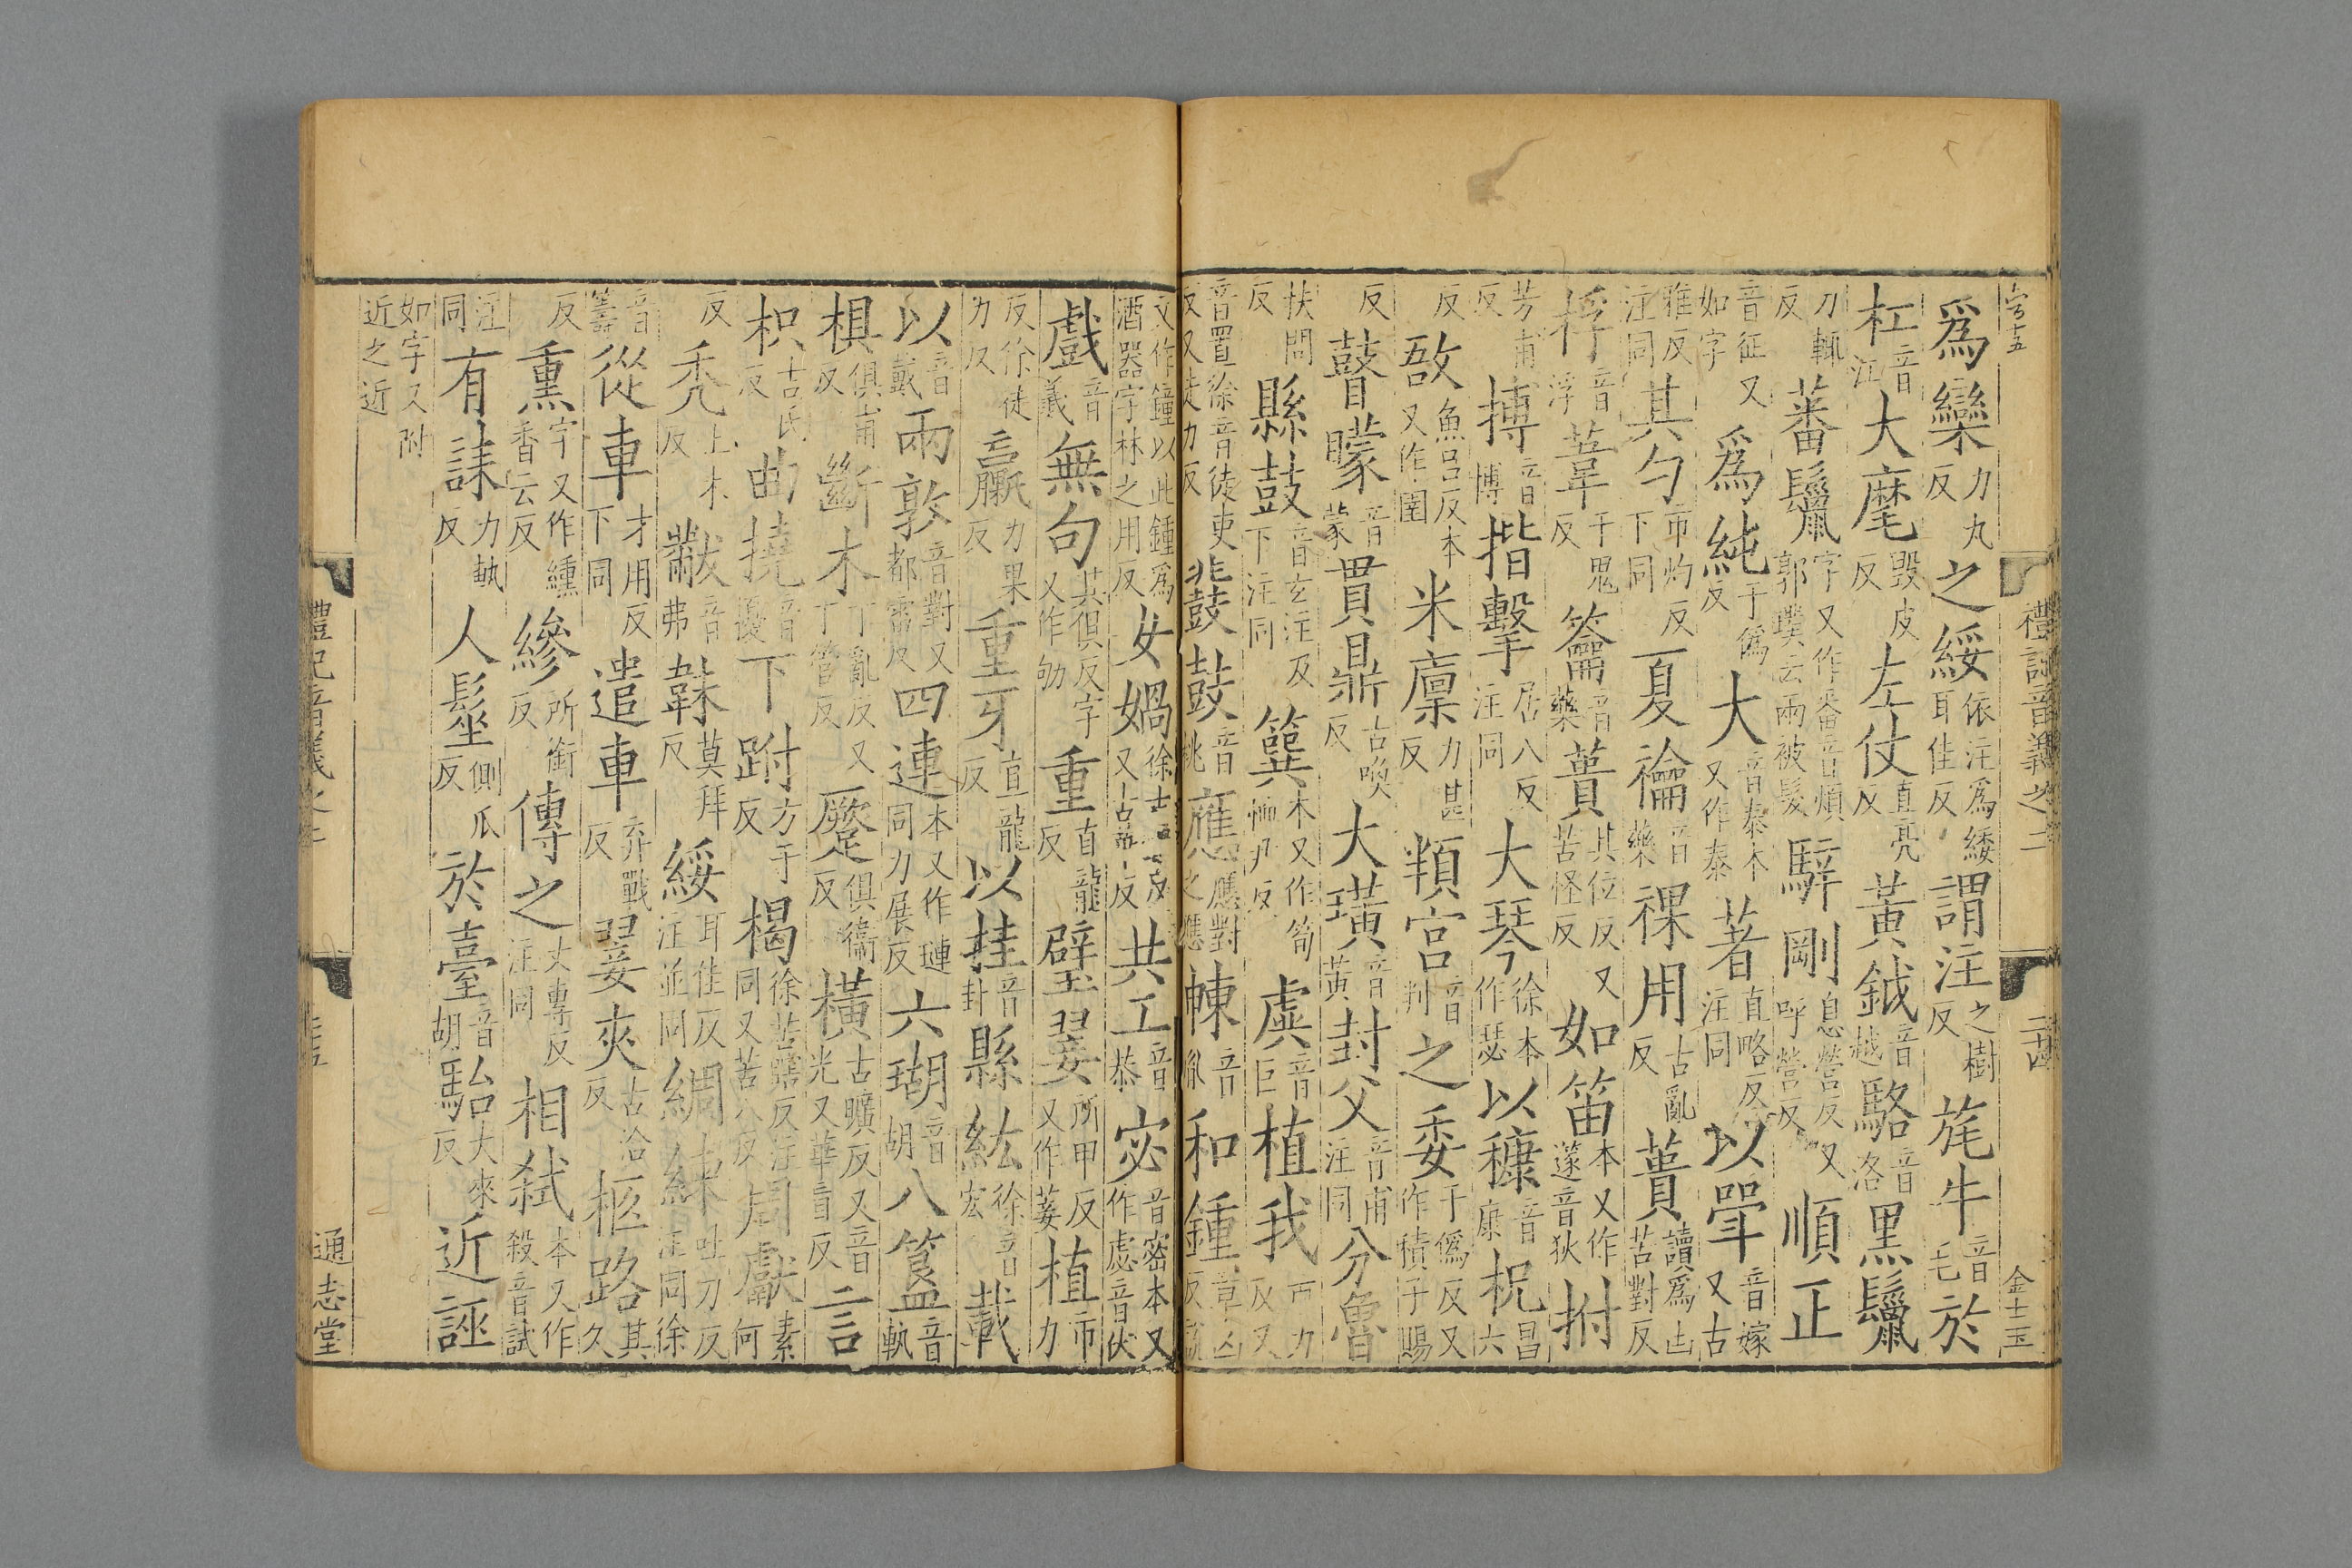 爲欒力丸反之綏依注爲緌耳隹反謂注之樹反旄牛音毛於
杠音江大麾毀皮反左仗直亮反黃鉞音越駱音洛黑鬣
力輒反蕃鬣字又作番音煩郭璞云兩被髮騂剛息營反又呼營反順正
音征又如字爲純于僞反大音泰本又作泰著直略反注同以斝音嫁又古
雅反注同其勺市灼反下同夏禴音藥祼用古亂反蕢讀爲凷苦對反
桴音浮葦于鬼反籥音藥蕢其位反又苦怪反如笛本又作篴音狄拊
芳甫反搏音博揩擊居八反注同大琴徐本作瑟以穅音康柷昌六
反敔魚呂反本又作圉米廩力甚反頖宮音判之委于僞反又作積子賜
反瞽矇音蒙貫鼎古喚反大璜音黃封父音甫注同分魯
扶問反縣鼓音玄注及下注同簨本又作筍恤尹反虡音巨植我
音置徐音徒吏反又徒力反鼗音桃應應對之應朄音胤和鍾章凶反
文作鐘以此鍾爲酒器字林之用反女媧徐共工音恭宓音密本又作虙音伏
戲音羲無句其俱反字又作劬重直龍反璧翣所甲反又作菨植市力
反徐徒力反臝力果反重牙直龍反以挂音卦縣紘徐音宏載
以音戴兩敦音對又都雷反四連本又作璉同力展反六瑚音胡八簋音軌
椇俱甫反斷木丁亂反又丁管反蹷俱衞反橫古曠反又音光又華盲反言
枳古氏反曲撓音擾下跗方于反楬徐苦瞎反注同又苦八反周獻素何
反禿土木反黻音弗韎莫拜反綏耳隹反注並同綢練吐刀反注同徐
音籌從車才用反下同遣車弃戰反翣夾古洽反柩路其久
反熏字又作纁香云反縿所銜反傳之丈專反注同相弒本又作殺音試
注同有誄力軌反人髽側瓜反於臺音胡駘大來反近誣
如字又附近之近
禮記音義之二
通志堂